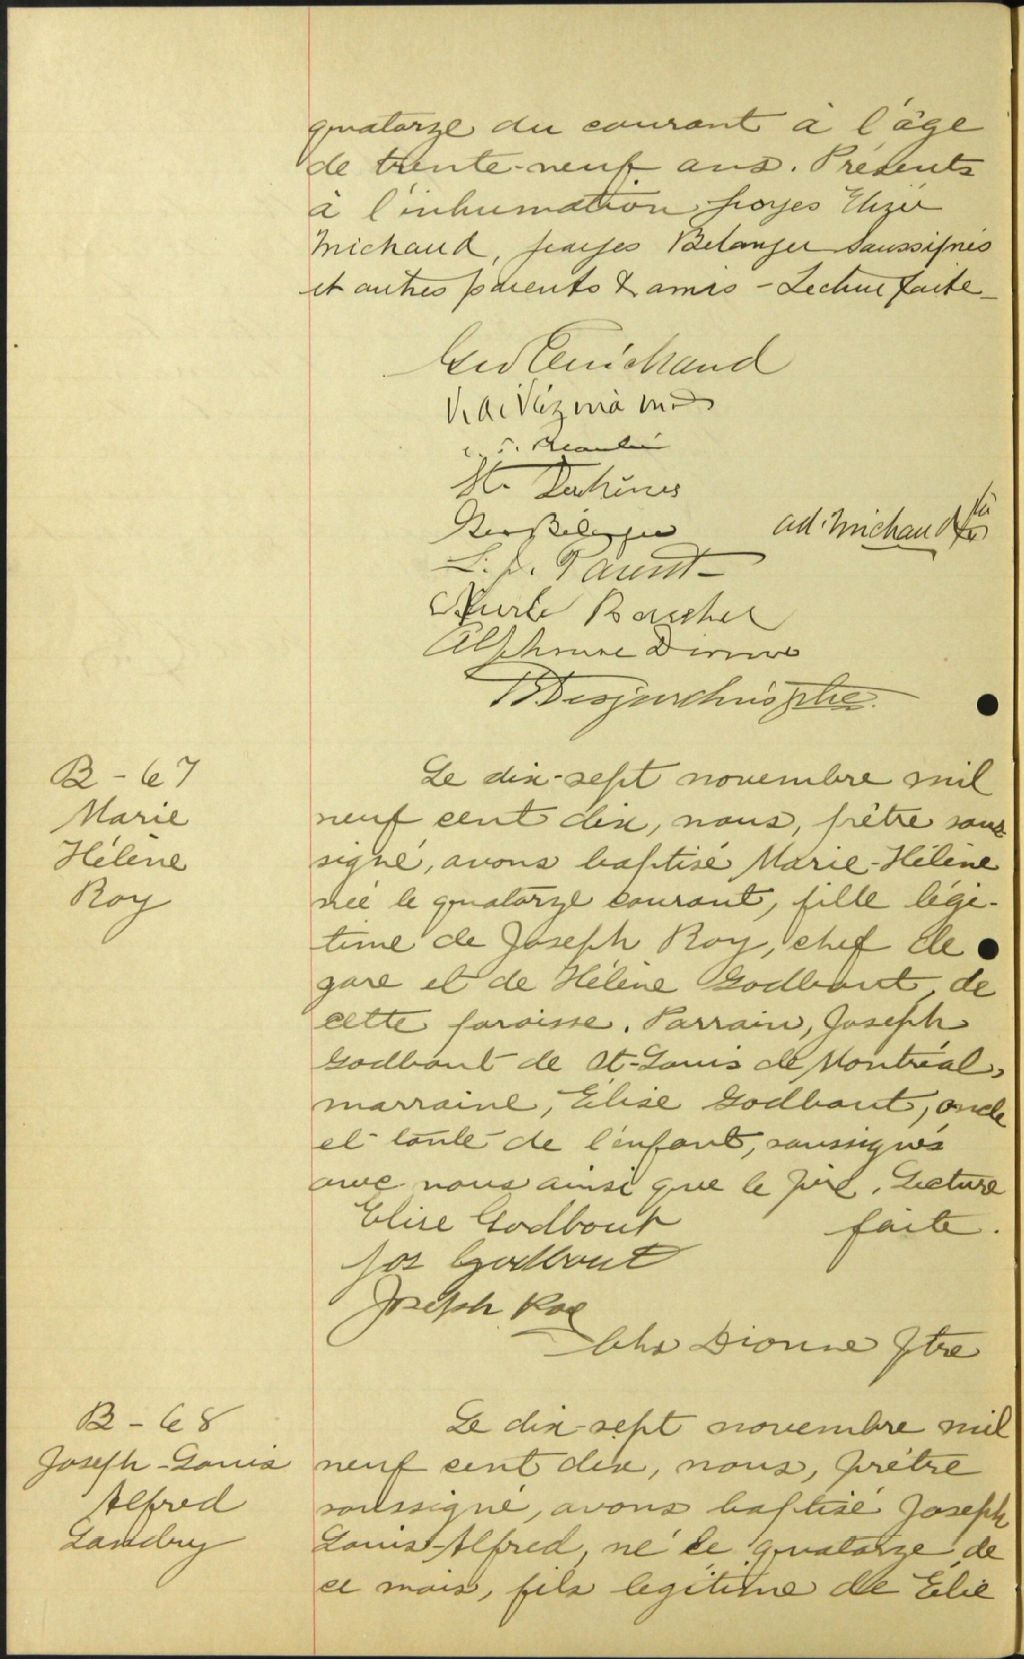 quatorze du courant à l'âge
de trente-neuf ans. Présents
à l'inhumation Elizée
Michaud, Belanger soussignés
et autres parents & amis - Lecture faite -
Geo E Michaud
Geo Bélanger
ad. Michaud
L. J. Parent
Alphonse Dionne
Desjardins ptre.
B - 67
Marie
Hélène
Roy
Le dix-sept novembre mil
neuf cent dix, nous, prêtre sous-
signé, avons baptisé Marie-Hélène
née le quatorze courant, fille légi-
time de Joseph Roy, chef de
gare et de Hélène Godbout, de
cette paroisse. Parrain, Joseph
Godbout de St-Louis de Montréal,
marraine, Élise Godbout, oncle
et tante de l'enfant, soussignés
avec nous ainsi que le père. Lecture
faite.
Elise Godbout
Jos Godbout
Joseph Roy
Chs Dionne Ptre
B - 68
Joseph-Louis
Alfred
Landry
Le dix-sept novembre mil
neuf cent dix, nous, prêtre
soussigné, avons baptisé Joseph
Louis-Alfred, né le quatorze de
ce mois, fils legitime de Élie